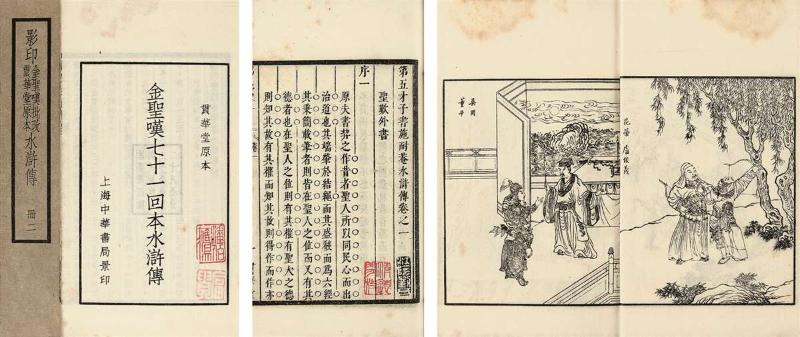 影印
金聖嘆批改
貫華堂原本
水滸傳
冊二
貫華堂原本
金聖嘆七十一回本水滸傳
上海中華書局景印
第五才子書施耐菴水滸傳卷之一
聖歎外書
序一
原夫書契之作昔者聖人所以同民心而出
治道也其端肇於結繩而其盛殽而為六經
其秉簡載筆者則皆在聖人之位而又有其
德者也在聖人之位則有其權有聖人之德
則知其故有其權而知其故則得作而作亦
吳用
董平
花榮
盧俊義